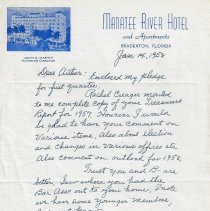 MANATEE RIVER HOTEL
and Apartments
BRADENTON, FLORIDA
JOHN G. MARTIN
MANAGING DIRECTOR
Jan 14, 1958
Dear Arthur: Enclosed my pledge
for first quarter.
Rachel Creager mailed
to me complete copy of your Treasurers
Report for 1957. However I would
be glad to have your comment on
Various items, Also about election
and changes in various offices etc
Also comment on outlook for 1958.
Trust you and B- are
better, I saw where you had the
Bar Asso out to your home, I note
we have some younger members,